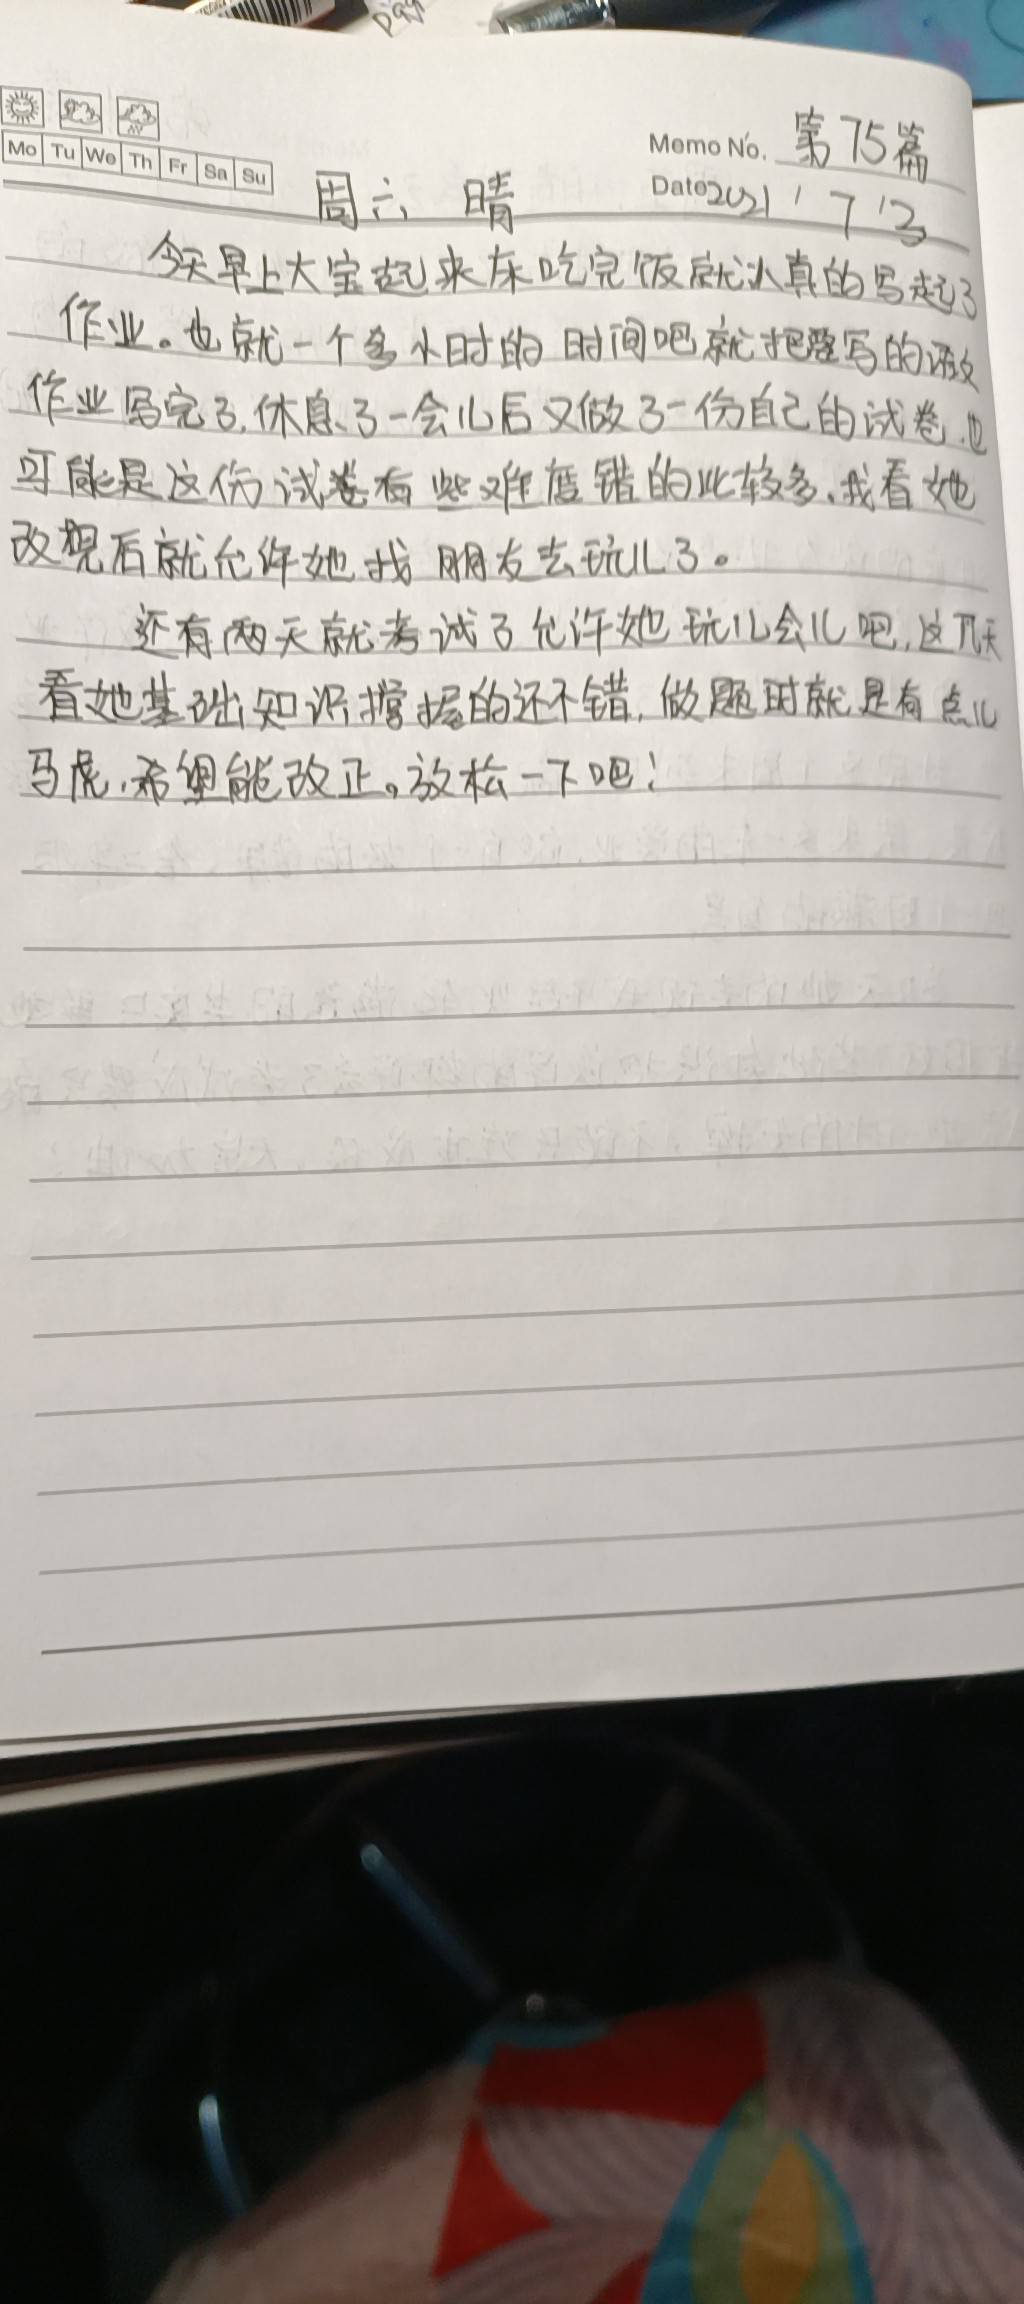 Mo Tu We Th Fr Sa Su
Memo No. 第75篇
Date 2021 / 7 / 3
周六 晴
今天早上大宝起来床吃完饭就认真的写起了
作业。也就一个多小时的时间吧就把要写的语文
作业写完了,休息了一会儿后又做了一份自己的试卷,也
可能是这份试卷有些难度错的比较多、我看她
改现后就允许她找朋友去玩儿了。
还有两天就考试了允许她玩儿会儿吧,这几天
看她基础知识撑握的还不错,做题时就是有点儿
马虎,希望能改正。放松一下吧!